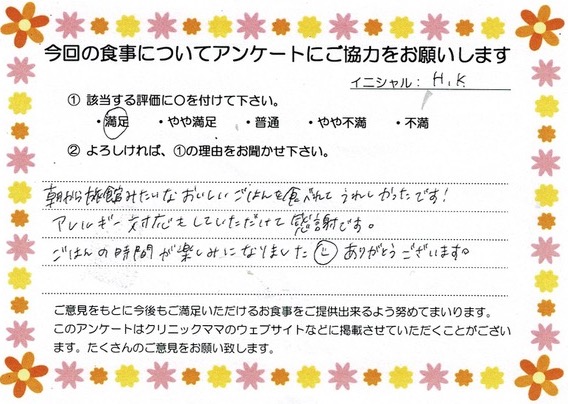 今回の食事についてアンケートにご協力をお願いします
イニシャル： H.K
① 該当する評価に○を付けて下さい。
・満足 ・やや満足 ・普通 ・やや不満 ・不満
② よろしければ、①の理由をお聞かせ下さい。
朝から旅館みたいなおいしいごはんを食べれてうれしかったです！
アレルギー対応もしていただけて感謝です。
ごはんの時間が楽しみになりました ありがとうございます。
ご意見をもとに今後もご満足いただけるお食事をご提供出来るよう努めてまいります。
このアンケートはクリニックママのウェブサイトなどに掲載させていただくことがござい
ます。たくさんのご意見をお願い致します。